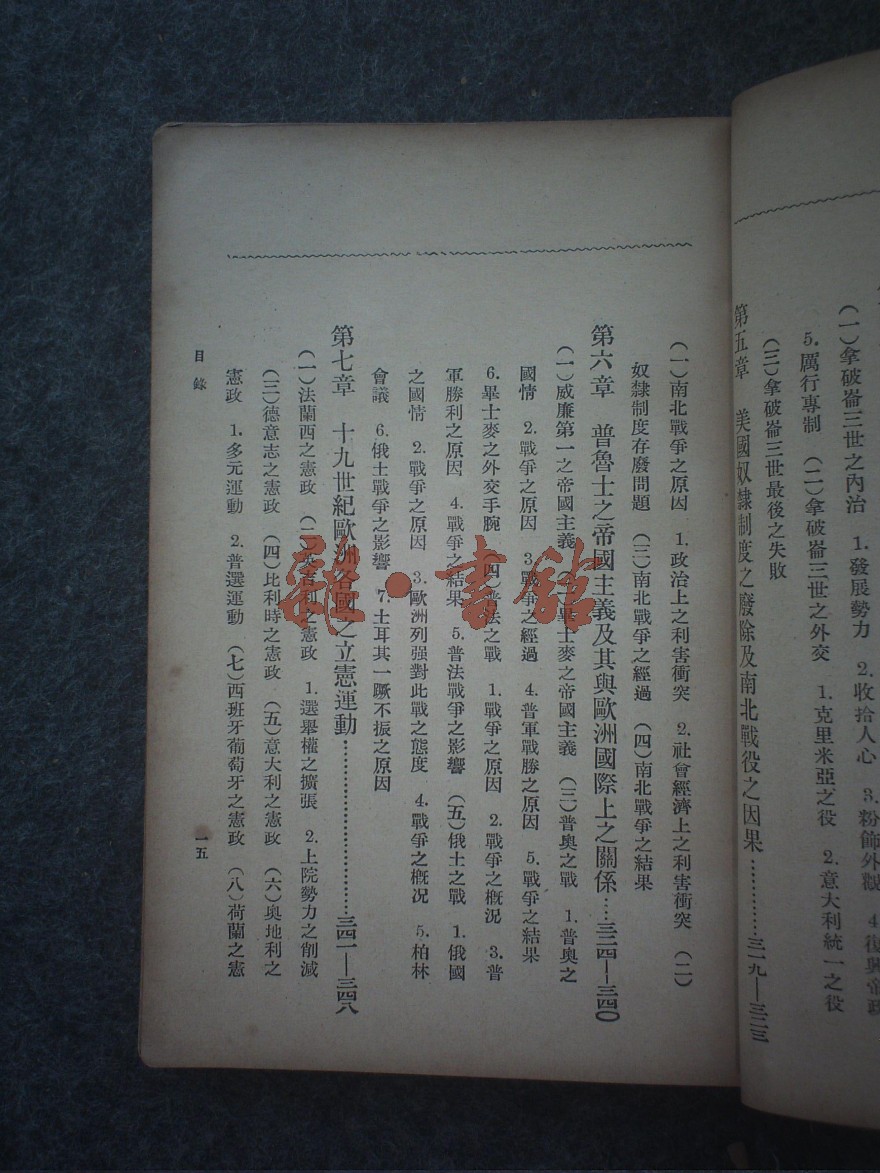 (一)拿破崙三世之內治 1.發展勢力 2.收拾人心 3.粉飾外觀 4.復興帝
5.厲行專制 (二)拿破崙三世之外交 1.克里米亞之役 2.意大利統一之役
(三)拿破崙三世最後之失敗
第五章 美國奴隸制度之廢除及南北戰役之因果…………三一九—三二三
(一)南北戰爭之原因 1.政治上之利害衝突 2.社會經濟上之利害衝突 (二)
奴隸制度存廢問題 (三)南北戰爭之經過 (四)南北戰爭之結果
第六章 普魯士之帝國主義及其與歐洲國際上之關係……三二四—三四〇
(一)威廉第一之帝國主義 (二)畢士麥之帝國主義 (三)普奧之戰 1.普奧之
國情 2.戰爭之原因 3.戰爭之經過 4.普軍戰勝之原因 5.戰爭之結果
6.畢士麥之外交手腕 (四)普法之戰 1.戰爭之原因 2.戰爭之槪況 3.普
軍勝利之原因 4.戰爭之結果 5.普法戰爭之影響 (五)俄土之戰 1.俄國
之國情 2.戰爭之原因 3.歐洲列强對此戰之態度 4.戰爭之槪况 5.柏林
會議 6.俄土戰爭之影響 7.土耳其一蹶不振之原因
第七章 十九世紀歐洲各國之立憲運動…………………………三四一—三四八
(一)法蘭西之憲政 (二)英吉利之憲政 1.選舉權之擴張 2.上院勢力之削減
(三)德意志之憲政 (四)比利時之憲政 (五)意大利之憲政 (六)奧地利之
憲政 1.多元運動 2.普選運動 (七)西班牙葡萄牙之憲政 (八)荷蘭之憲
目錄
一五
書館